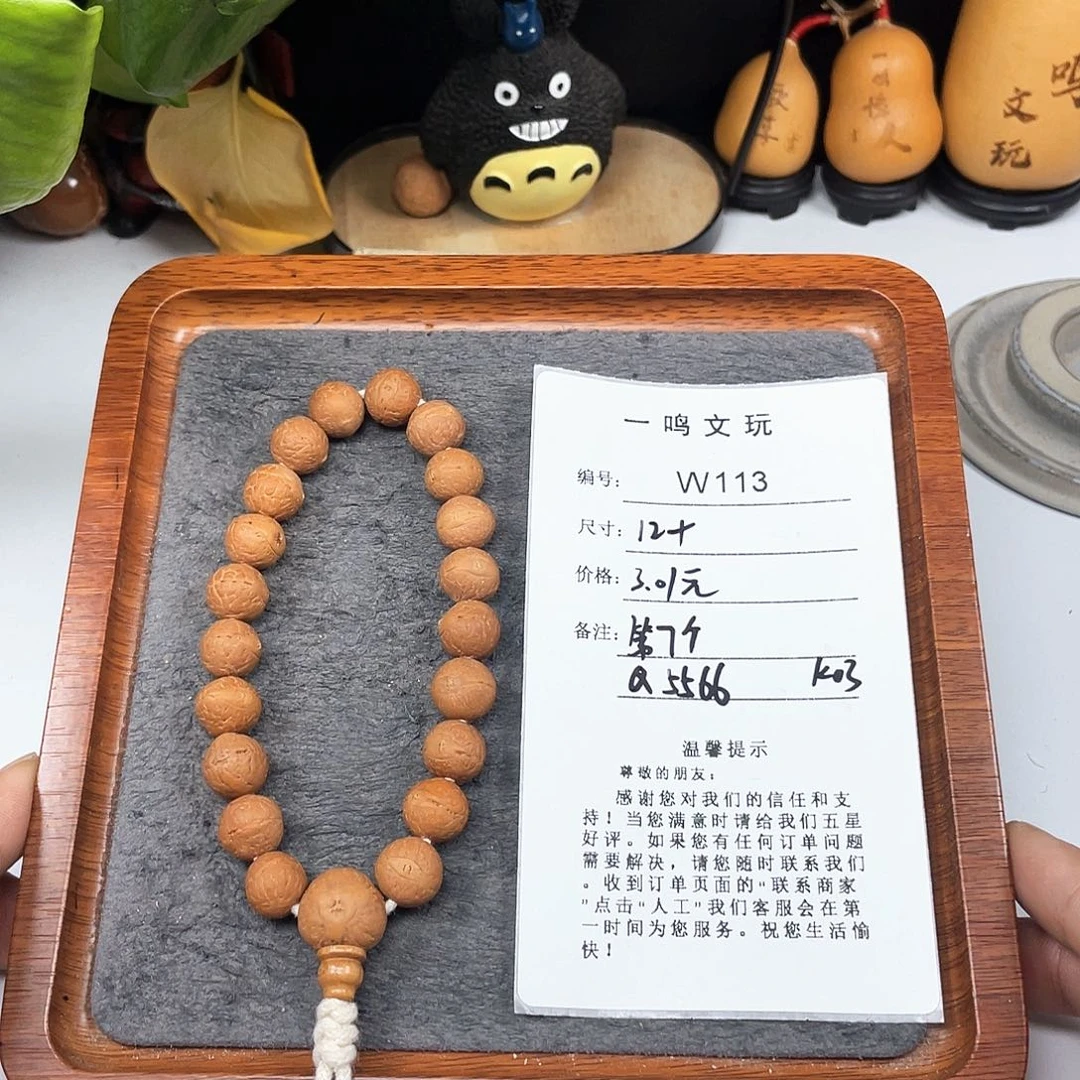 一鸣懷人
文玩
鸣
一鸣文玩
编号: W113
尺寸: 12+
价格: 3.01元
备注: 第7个
Q5566 K03
温馨提示
尊敬的朋友:
感谢您对我们的信任和支
持!当您满意时请给我们五星
好评。如果您有任何订单问题
需要解决,请您随时联系我们
。收到订单页面的“联系商家
”点击“人工”我们客服会在第
一时间为您服务。祝您生活愉
快!